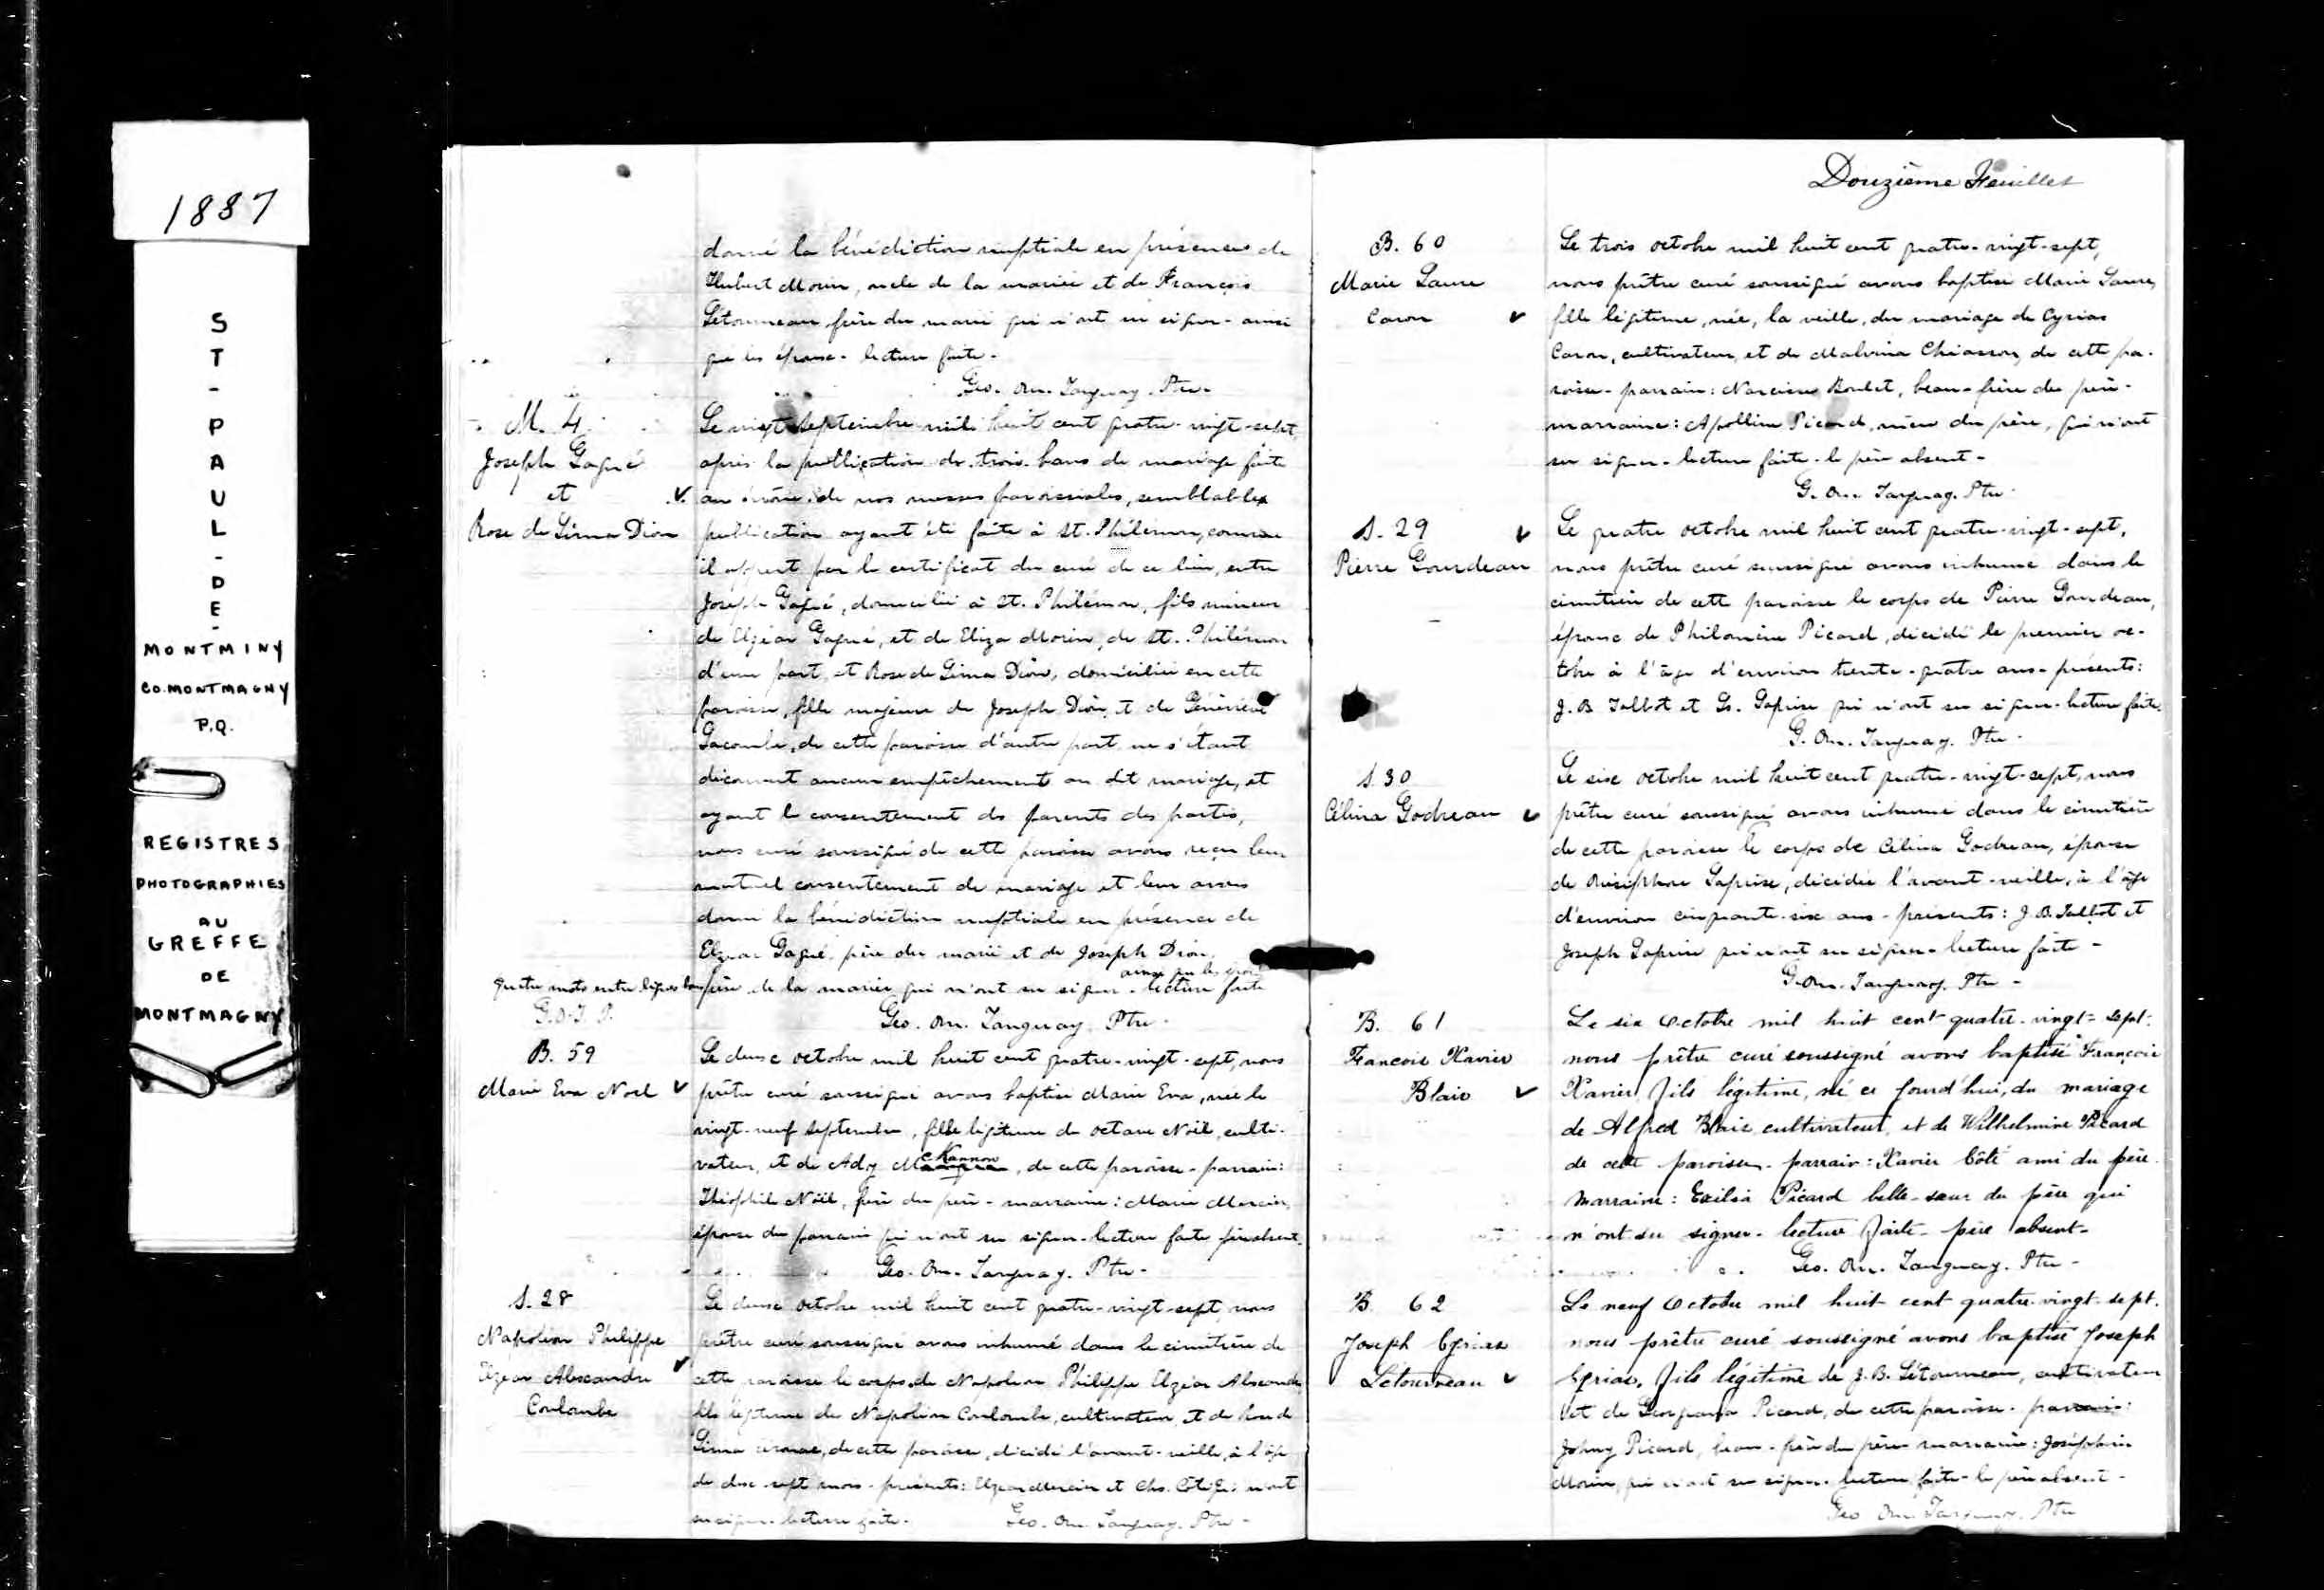 1887
ST-PAUL-DE-
MONTMINY
CO. MONTMAGNY
P.Q.
REGISTRES
PHOTOGRAPHIES
AU
GREFFE
DE
MONTMAGNY
donné la bénédiction nuptiale en présence de
Hubert Morin, oncle de la mariée et de François
Létourneau frère du marié qui n'ont su signer - ainsi
que les époux - lecture faite -
Geo. On. Tanguay. Ptre -
M. 4
Joseph Gagné
et
Rose de Lima Dion
Le vingt septembre mil huit cent quatre-vingt-sept
après la publication de trois bans de mariage faite
au prône de nos messes paroissiales, semblables
publication ayant été faite à St. Philémon, comme
il appert par le certificat du curé de ce lieu, entre
Joseph Gagné, domicilié à St. Philémon, fils mineur
de Elzéar Gagné, et de Eliza Morin, de St. Philémon
d'une part, et Rose de Lima Dion, domiciliée en cette
paroisse, fille majeure de Joseph Dion et de Généviève
Lacombe, de cette paroisse d'autre part ne s'étant
découvert aucun empêchement au dit mariage, et
ayant le consentement des parents des parties,
nous curé soussigné de cette paroisse avons reçu leur
mutuel consentement de mariage et leur avons
donné la bénédiction nuptiale en présence de
Elzéar Gagné père du marié et de Joseph Dion,
ainsi que les époux
quatre mots entre lignes bons
père de la mariée qui n'ont su signer - lecture faite
G.O.T. P.
Geo. On. Tanguay. Ptre -
B. 59
Marie Eva Noel
Le deux octobre mil huit cent quatre-vingt-sept, nous
prêtre curé soussigné avons baptisé Marie Eva, née le
vingt-neuf septembre, fille légitime de Octave Noël, culti-
vateur, et de Ady McKannon, de cette paroisse - parrain:
Théophile Noël, frère du père - marraine: Marie Mercier,
épouse du parrain qui n'ont su signer - lecture faite père absent.
Geo. On. Tanguay. Ptre -
S. 28
Napoléon Philippe
Elzéar Alexandre
Coulombe
Le deux octobre mil huit cent quatre-vingt-sept, nous
prêtre curé soussigné avons inhumé dans le cimetière de
cette paroisse le corps de Napoléon Philippe Elzéar Alexandre
fils légitime de Napoléon Coulombe, cultivateur, et de Rose de
Lima de cette paroisse, décédé l'avant-veille, à l'âge
de dix-sept mois - présents: Elzéar Mercier et Chs. Côté qui n'ont
su signer - lecture faite.
Geo. On. Tanguay. Ptre -
Douzième Feuillet
B. 60
Marie Laure
Caron
Le trois octobre mil huit cent quatre-vingt-sept,
nous prêtre curé soussigné avons baptisé Marie Laure,
fille légitime, née, la veille, du mariage de Cyrias
Caron, cultivateur, et de Malvina Chiasson, de cette pa-
roisse - parrain: Narcisse Boulet, beau-frère du père -
marraine: Apolline Picard, mère du père, qui n'ont
su signer - lecture faite - le père absent -
G. On. Tanguay. Ptre -
S. 29
Pierre Gourdeau
Le quatre octobre mil huit cent quatre-vingt-sept,
nous prêtre curé soussigné avons inhumé dans le
cimetière de cette paroisse le corps de Pierre Gourdeau,
épouse de Philomène Picard, décédé le premier oc-
tobre à l'âge d'environ trente-quatre ans - présents:
J. B. Talbot et Ls. Laprise qui n'ont su signer - lecture faite.
G. On. Tanguay. Ptre -
S. 30
Célina Godreau
Le six octobre mil huit cent quatre-vingt-sept, nous
prêtre curé soussigné avons inhumé dans le cimetière
de cette paroisse le corps de Célina Godreau, épouse
de Onésiphore Laprise, décédée l'avant-veille, à l'âge
d'environ cinquante-six ans - présents: J. B. Talbot et
Joseph Laprise qui n'ont su signer - lecture faite -
G. On. Tanguay. Ptre -
B. 61
Francois Xavier
Blais
Le six Octobre mil huit cent quatre-vingt-sept.
nous prêtre curé soussigné avons baptisé François
Xavier, fils légitime, né ce jourd'hui, du mariage
de Alfred Blais cultivateur, et de Wilhelmine Picard
de cette paroisse - parrain: Xavier Côté ami du père
Marraine: Exilia Picard belle-sœur du père qui
n'ont su signer - lecture faite - père absent -
Geo. On. Tanguay. Ptre -
B. 62
Joseph Cyrias
Létourneau
Le neuf Octobre mil huit cent quatre-vingt-sept.
nous prêtre curé soussigné avons baptisé Joseph
Cyrias, fils légitime de J. B. Létourneau, cultivateur
et de Georgiana Picard, de cette paroisse - parrain:
Johny Picard, beau-frère du père marraine: Joséphine
Morin, qui n'ont su signer - lecture faite - le père absent -
Geo On. Tanguay. Ptre